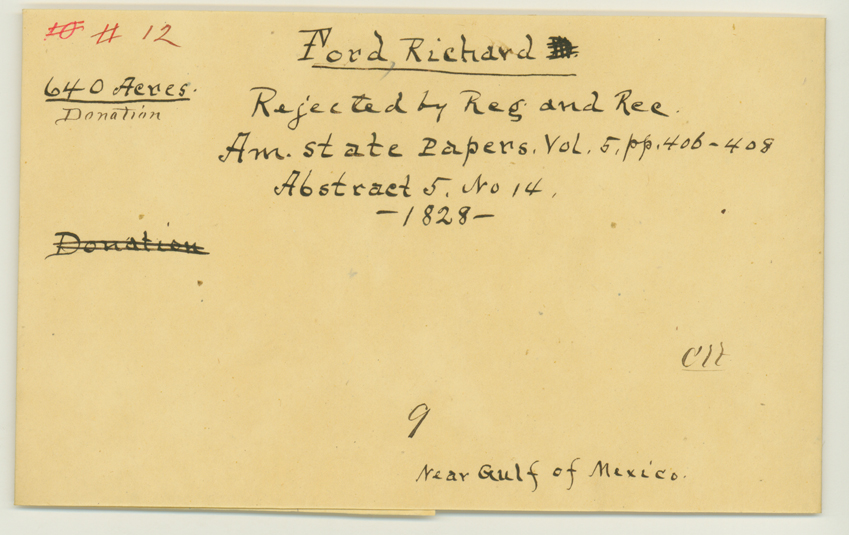 # 12
Ford, Richard
640 Acres.
Donation
Rejected by Reg and Rec.
Am. state Papers. Vol. 5, pp. 406-408
Abstract 5. No 14.
-1828-
Donation
9
Near Gulf of Mexico.